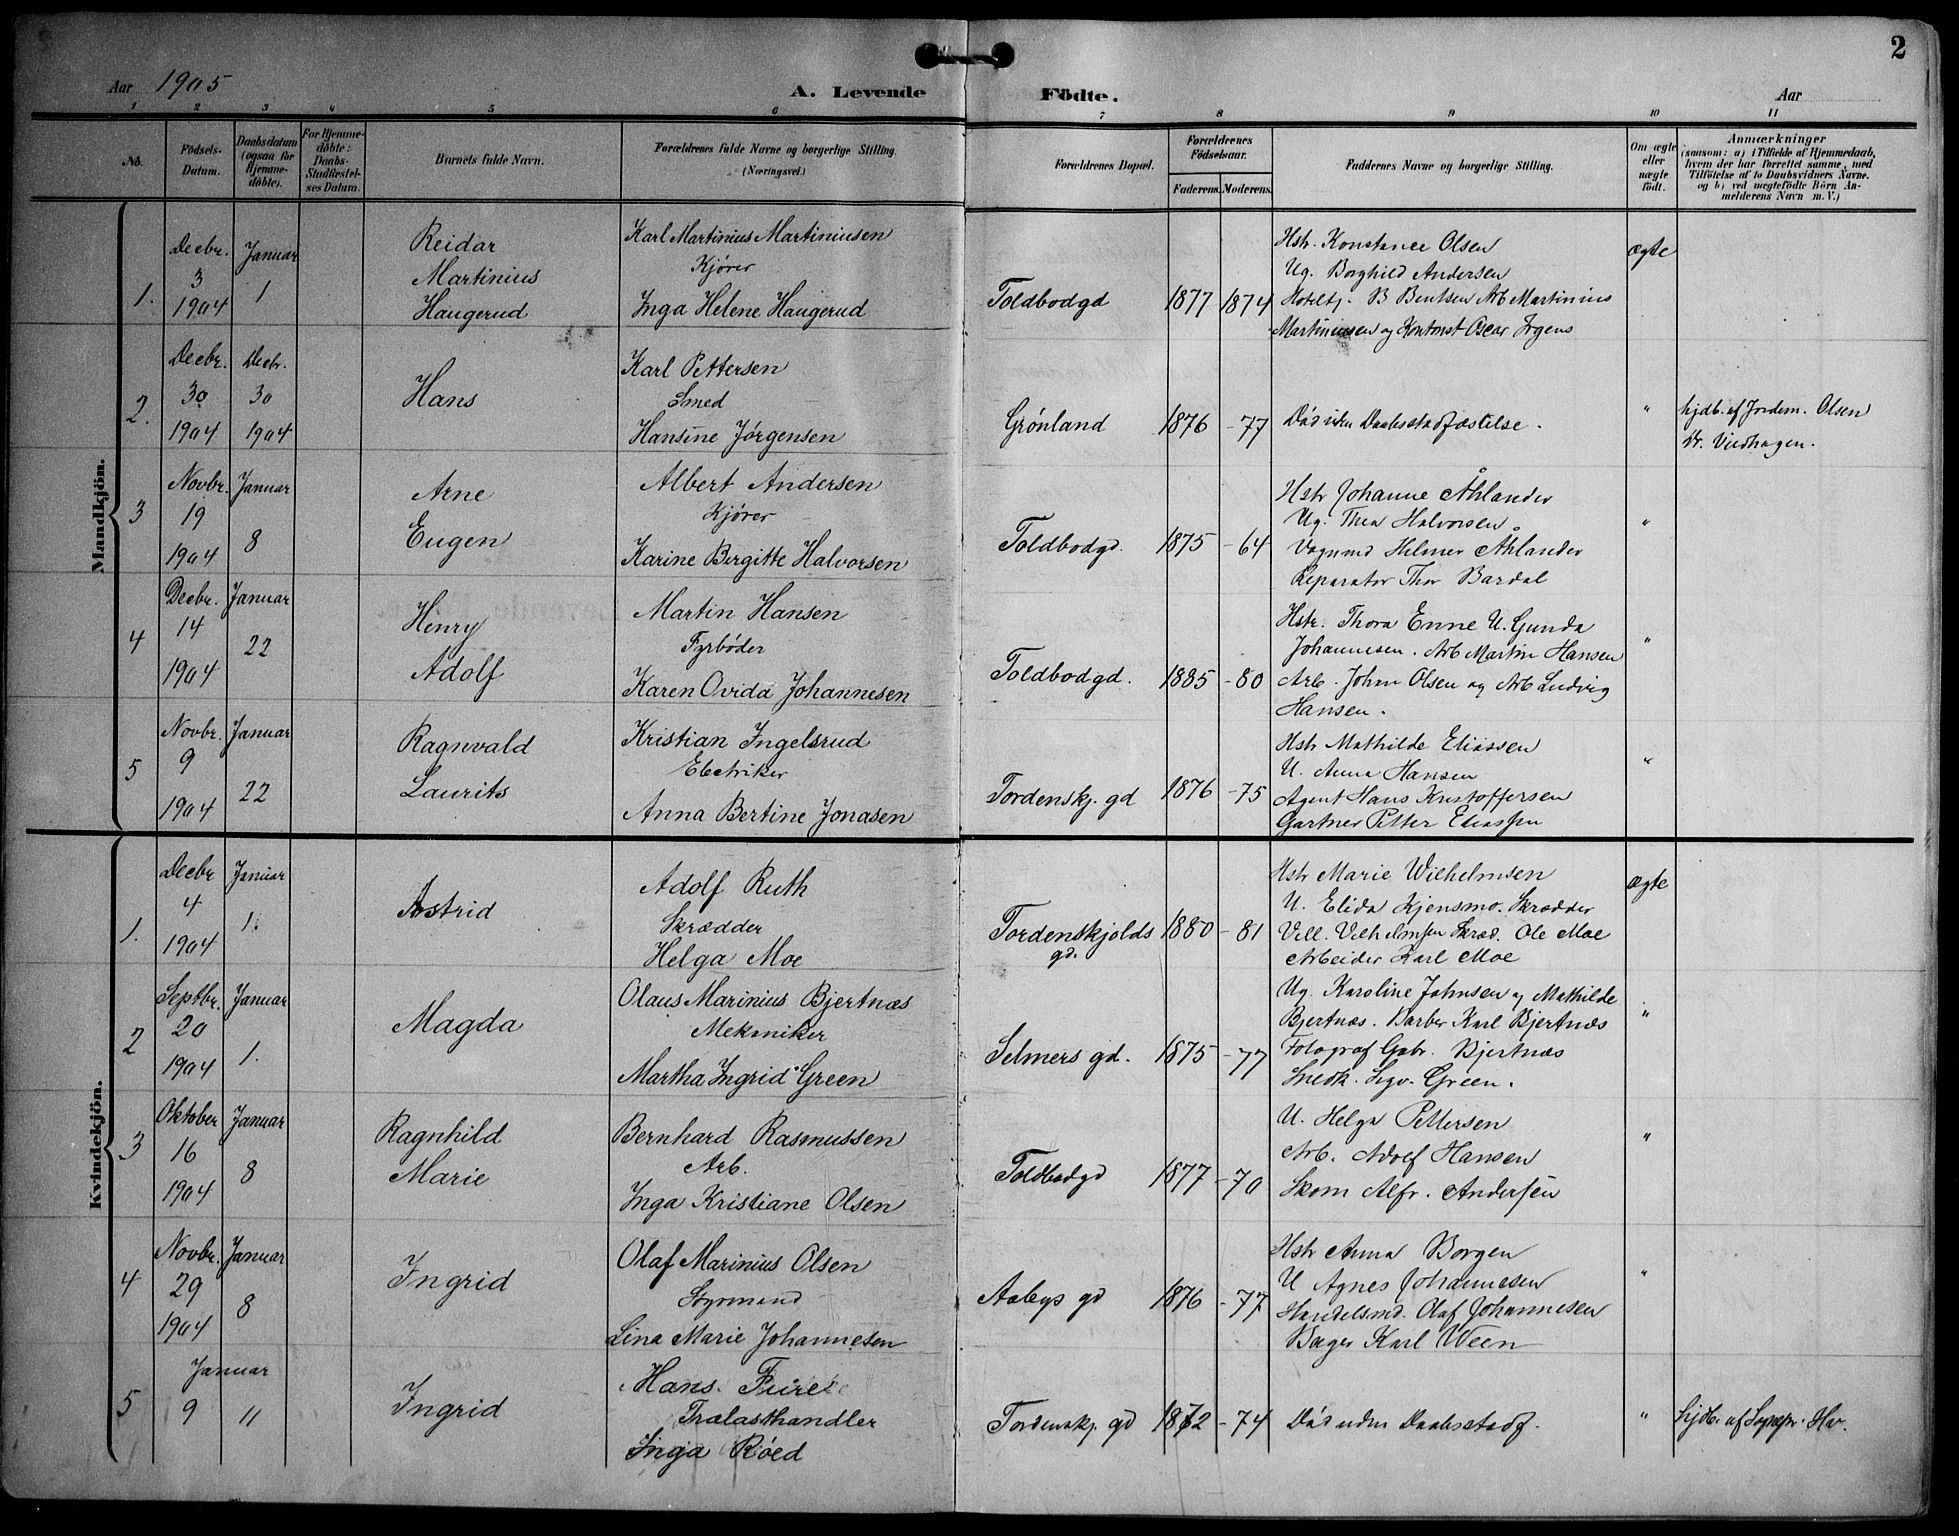 2
Aar 1905
A. Levende Födte.
Aar
1 2 3 4 5 6 7 8 9 10 11
No.
Födsels-Datum.
Daabsdatum (ogsaa för Hjemmedöbte).
For Hjemmedöbte: Daabs-Stadfæstelses Datum.
Barnets fulde Navn.
Forældrenes fulde Navne og borgerlige Stilling.
(Næringsvei.)
Forældrenes Bopæl.
Forældrenes Födselsaar.
Faderens. Moderens.
Faddernes Navne og borgerlige Stilling.
Om ægte eller uægte födt.
Anmærkninger
(saasom: a) i Tilfælde af Hjemmedaab,
hvem der har forrettet samme, med
Tilföielse af to Daabsvidners Navne.
og b) ved uægtefödte Börn An-
melderens Navn m. V.)
Mandkjön.
1.
Decbr. 3 1904
Januar 1
Reidar
Martinius
Haugerud
Karl Martinius Martiniusen
Kjörer
Inga Helene Haugerud
Toldbodgd
1877 1874
Hstr. Konstance Olsen
Ug. Borghild Andersen
Hoteltj. B Bentsen Arb Martinius
Martiniussen og Kontorist Oscar
ægte
2.
Decbr. 30 1904
Decbr. 30 1904
Hans
Karl Pettersen
Smed
Hansine Jørgensen
Grønland
1876 -77
Död uden Daabsstadfæstelse.
"
hjdb. af Jordem. Olsen
Nr.
3
Novbr. 19 1904
Januar 8
Arne
Eugen
Albert Andersen
Kjörer
Karine Birgitte Halvorsen
Toldbodgd.
1875 -64
Hstr Johanne Åhlander
Ug. Thea Halvorsen
Vognmd Helmer Åhlander
Reparatør Thor Bardal
"
4
Decbr. 14 1904
Januar 22
Henry
Adolf
Martin Hansen
Fyrböder
Karen Ovida Johannesen
Toldbodgd.
1885 -80
Hstr. Thora Enne U. Gunda
Johannesen. Arb Martin Hansen
Arb. Johan Olsen og Arb Ludvig
Hansen.
"
5
Novbr. 9 1904
Januar 22
Ragnvald
Laurits
Kristian Ingelsrud
Electriker
Anna Bertine Jonasen
Tordenskj. gd
1876 -75
Hstr Mathilde Eliassen
U. Anna Hansen
Agent Hans Kristoffersen
Gartner Petter Eliassen
"
Kvindekjön.
1.
Decbr 4 1904
Januar 1.
Astrid
Adolf Ruth
Skrædder
Helga Moe
Tordenskjolds gd.
1880 -81
Hstr Marie Wilhelmsen
U. Elida Kjensmo. Skrædder
Vill. Vilhelmsen Skræd. Ole Moe
Arbeider Karl Moe
ægte
2
Septbr. 20 1904
Januar 1.
Magda
Olaus Marinius Bjertnæs
Mekaniker
Martha Ingrid Green
Selmers gd.
1875 -77
Ug. Karoline Johnsen og Mathilde
Bjertnæs. Barber Karl Bjertnæs
Fotograf Gabr. Bjertnæs
Snedk. Sigv. Green.
"
3
Oktober 16 1904
Januar 8
Ragnhild
Marie
Bernhard Rasmussen
Arb.
Inga Kristiane Olsen
Toldbodgd
1877 -70
U. Helga Pettersen
Arb. Adolf Hansen
Skom Alfr. Andersen
"
4
Novbr. 29 1904
Januar 8
Ingrid
Olaf Marinius Olsen
Styrmand
Lina Marie Johannesen
Aabys gd
1876 -77
Hstr Anna Borgen
U Agnes Johannesen
Handelsmd. Olaf Johannesen
Bager Karl Ween
"
5
Januar 9
"
Ingrid
Hans Fure
Trælasthandler
Inga Röed
Tordenskj. gd
1872 -74
Död uden Daabsstadf.
"
hjdb. af Sognepr.